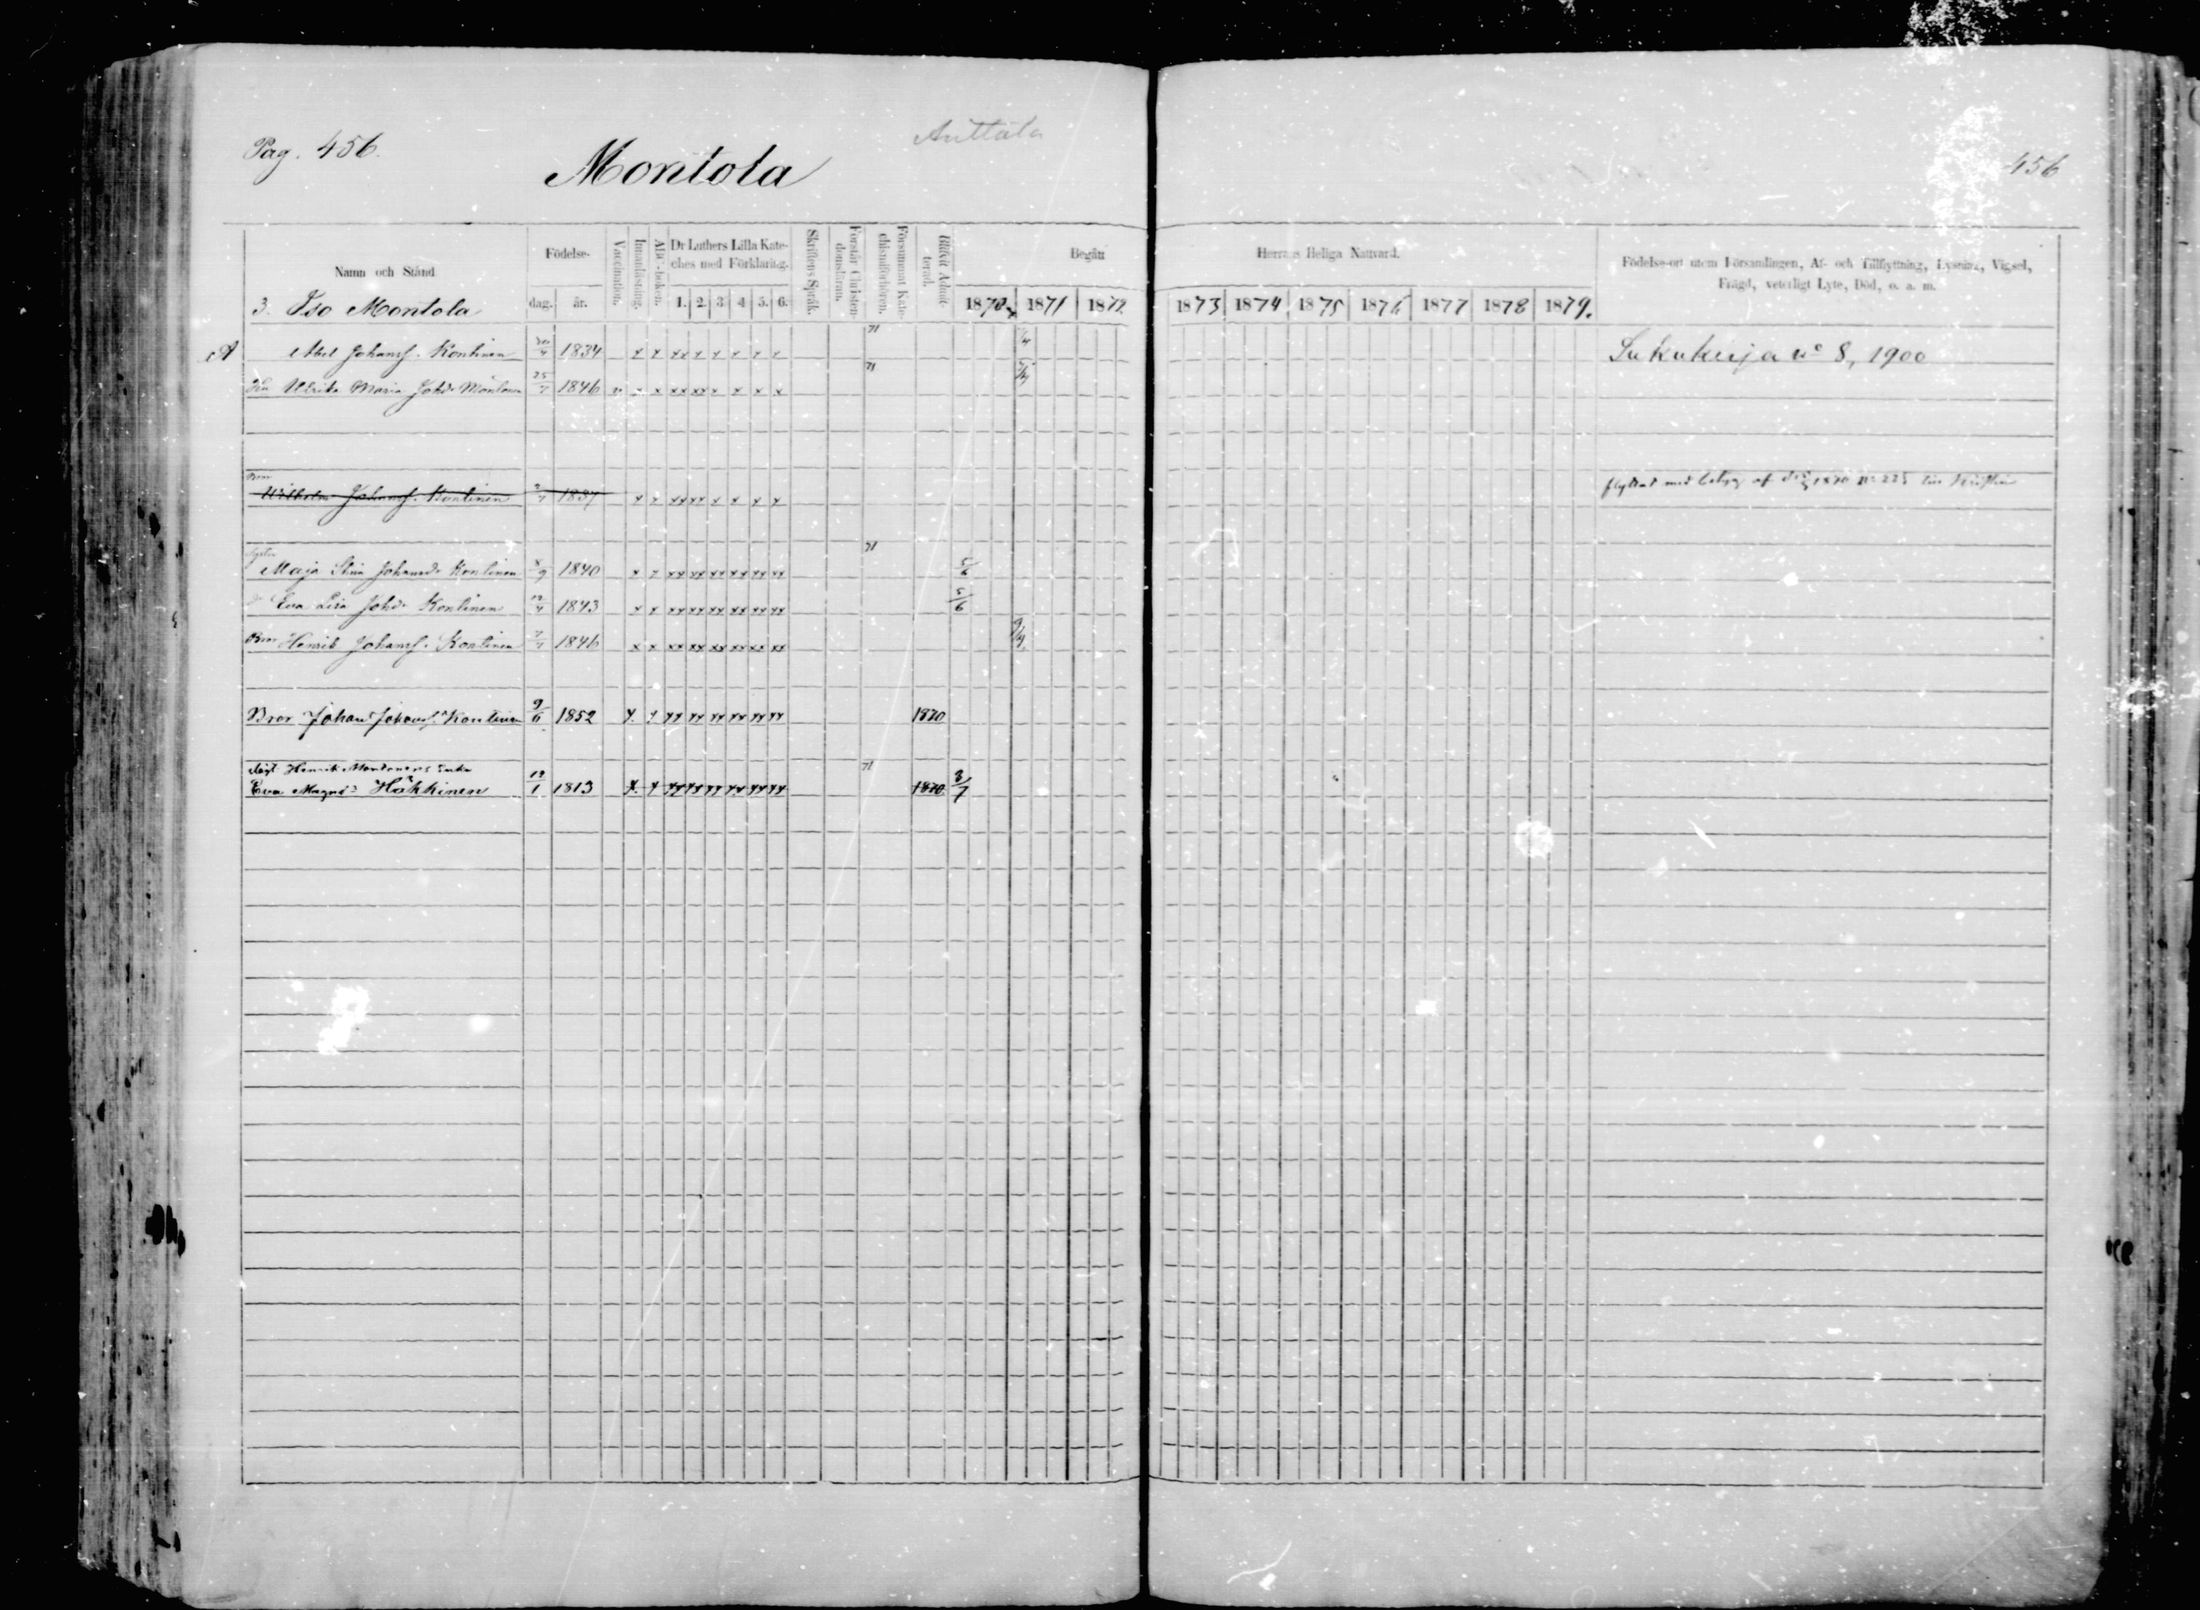 Pag. 456.
Anttola
Montola
456
Namn och Stånd
Födelse-
dag. år.
Vaccination.
Innanläsning.
Abc-boken.
Dr Luthers Lilla Kate-
ches med Förklaring.
1. 2. 3 4 5. 6.
Skriftens Språk.
Förstår Christen-
domsläran.
Försummat Kate-
chismiförhören.
Blifvit Admit-
terad.
Begått
Herrans Heliga Nattvard.
1870 1871 1872
1873 1874 1875 1876 1877 1878 1879.
Födelse-ort utom Församlingen, Af- och Tillflyttning, Lysning, Vigsel,
Frägd, veterligt Lyte, Död, o. a. m.
3. Iso Montola
Abel Johansf. Kontinen 1834 x x xx x x x x x 71
Sukukirja no 8, 1900
Ulrika Maria Johd. 25/7 1846 v x x xx xx x x x x 71
Bror
Wilhelm Johansf. Kontinen 1837 x x xx xx x x x x
flyttad med betyg af 1870 no 225
Syster
Maja Stina Johansd. Kontinen 8/9 1840 x x xx xx xx xx xx xx 71 5/6
Eva Lisa Johd. Kontinen 1843 x x xx xx xx xx xx xx 5/6
Bror Henrik Johansf. Kontinen 1846 x x xx xx xx xx xx xx
Bror Johan Johansf. Kontinen 9/6 1852 x. x xx xx xx xx xx xx 1870
Henrik Enka
Eva Magnsd Häkkinen 12/1 1813 x. x xx xx xx xx xx xx 71 1870. 3/7